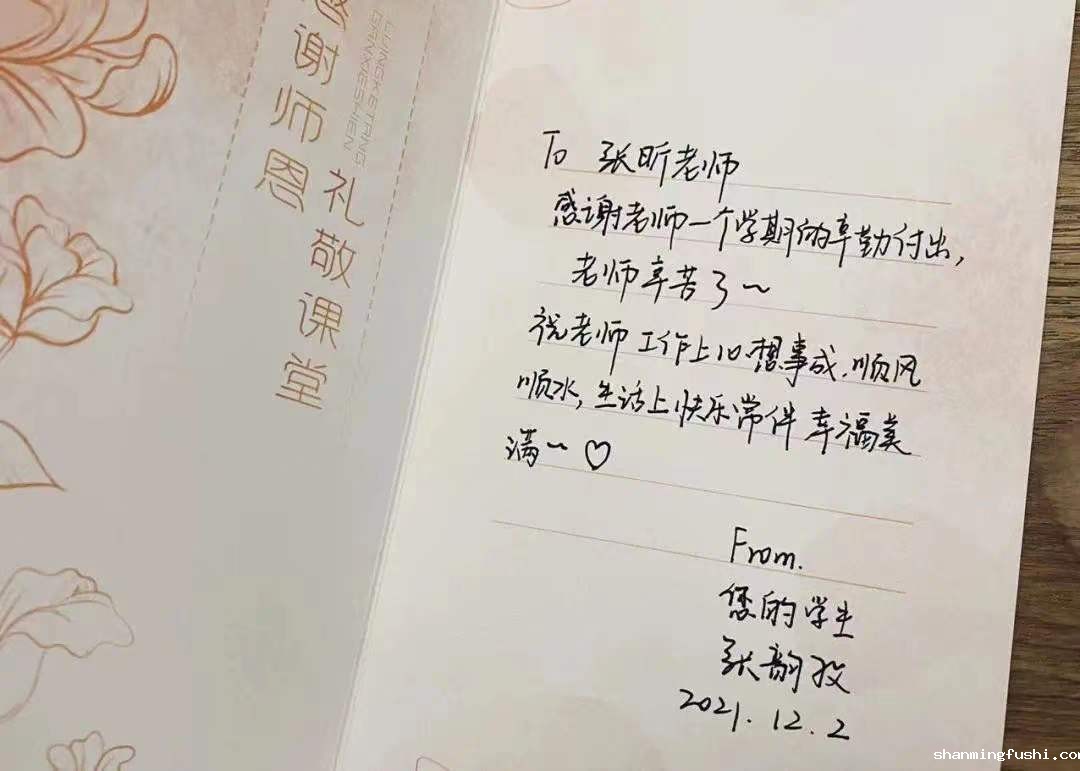 感谢师恩
礼敬课堂
GANXIESHIEN
To 张昕老师
感谢老师一个学期的辛勤付出,
老师辛苦了~
祝老师工作上心想事成,顺风
顺水,生活上快乐常伴 幸福美
满~♡
From.
您的学生
张韵
2021.12.2
shanmingfushi.com